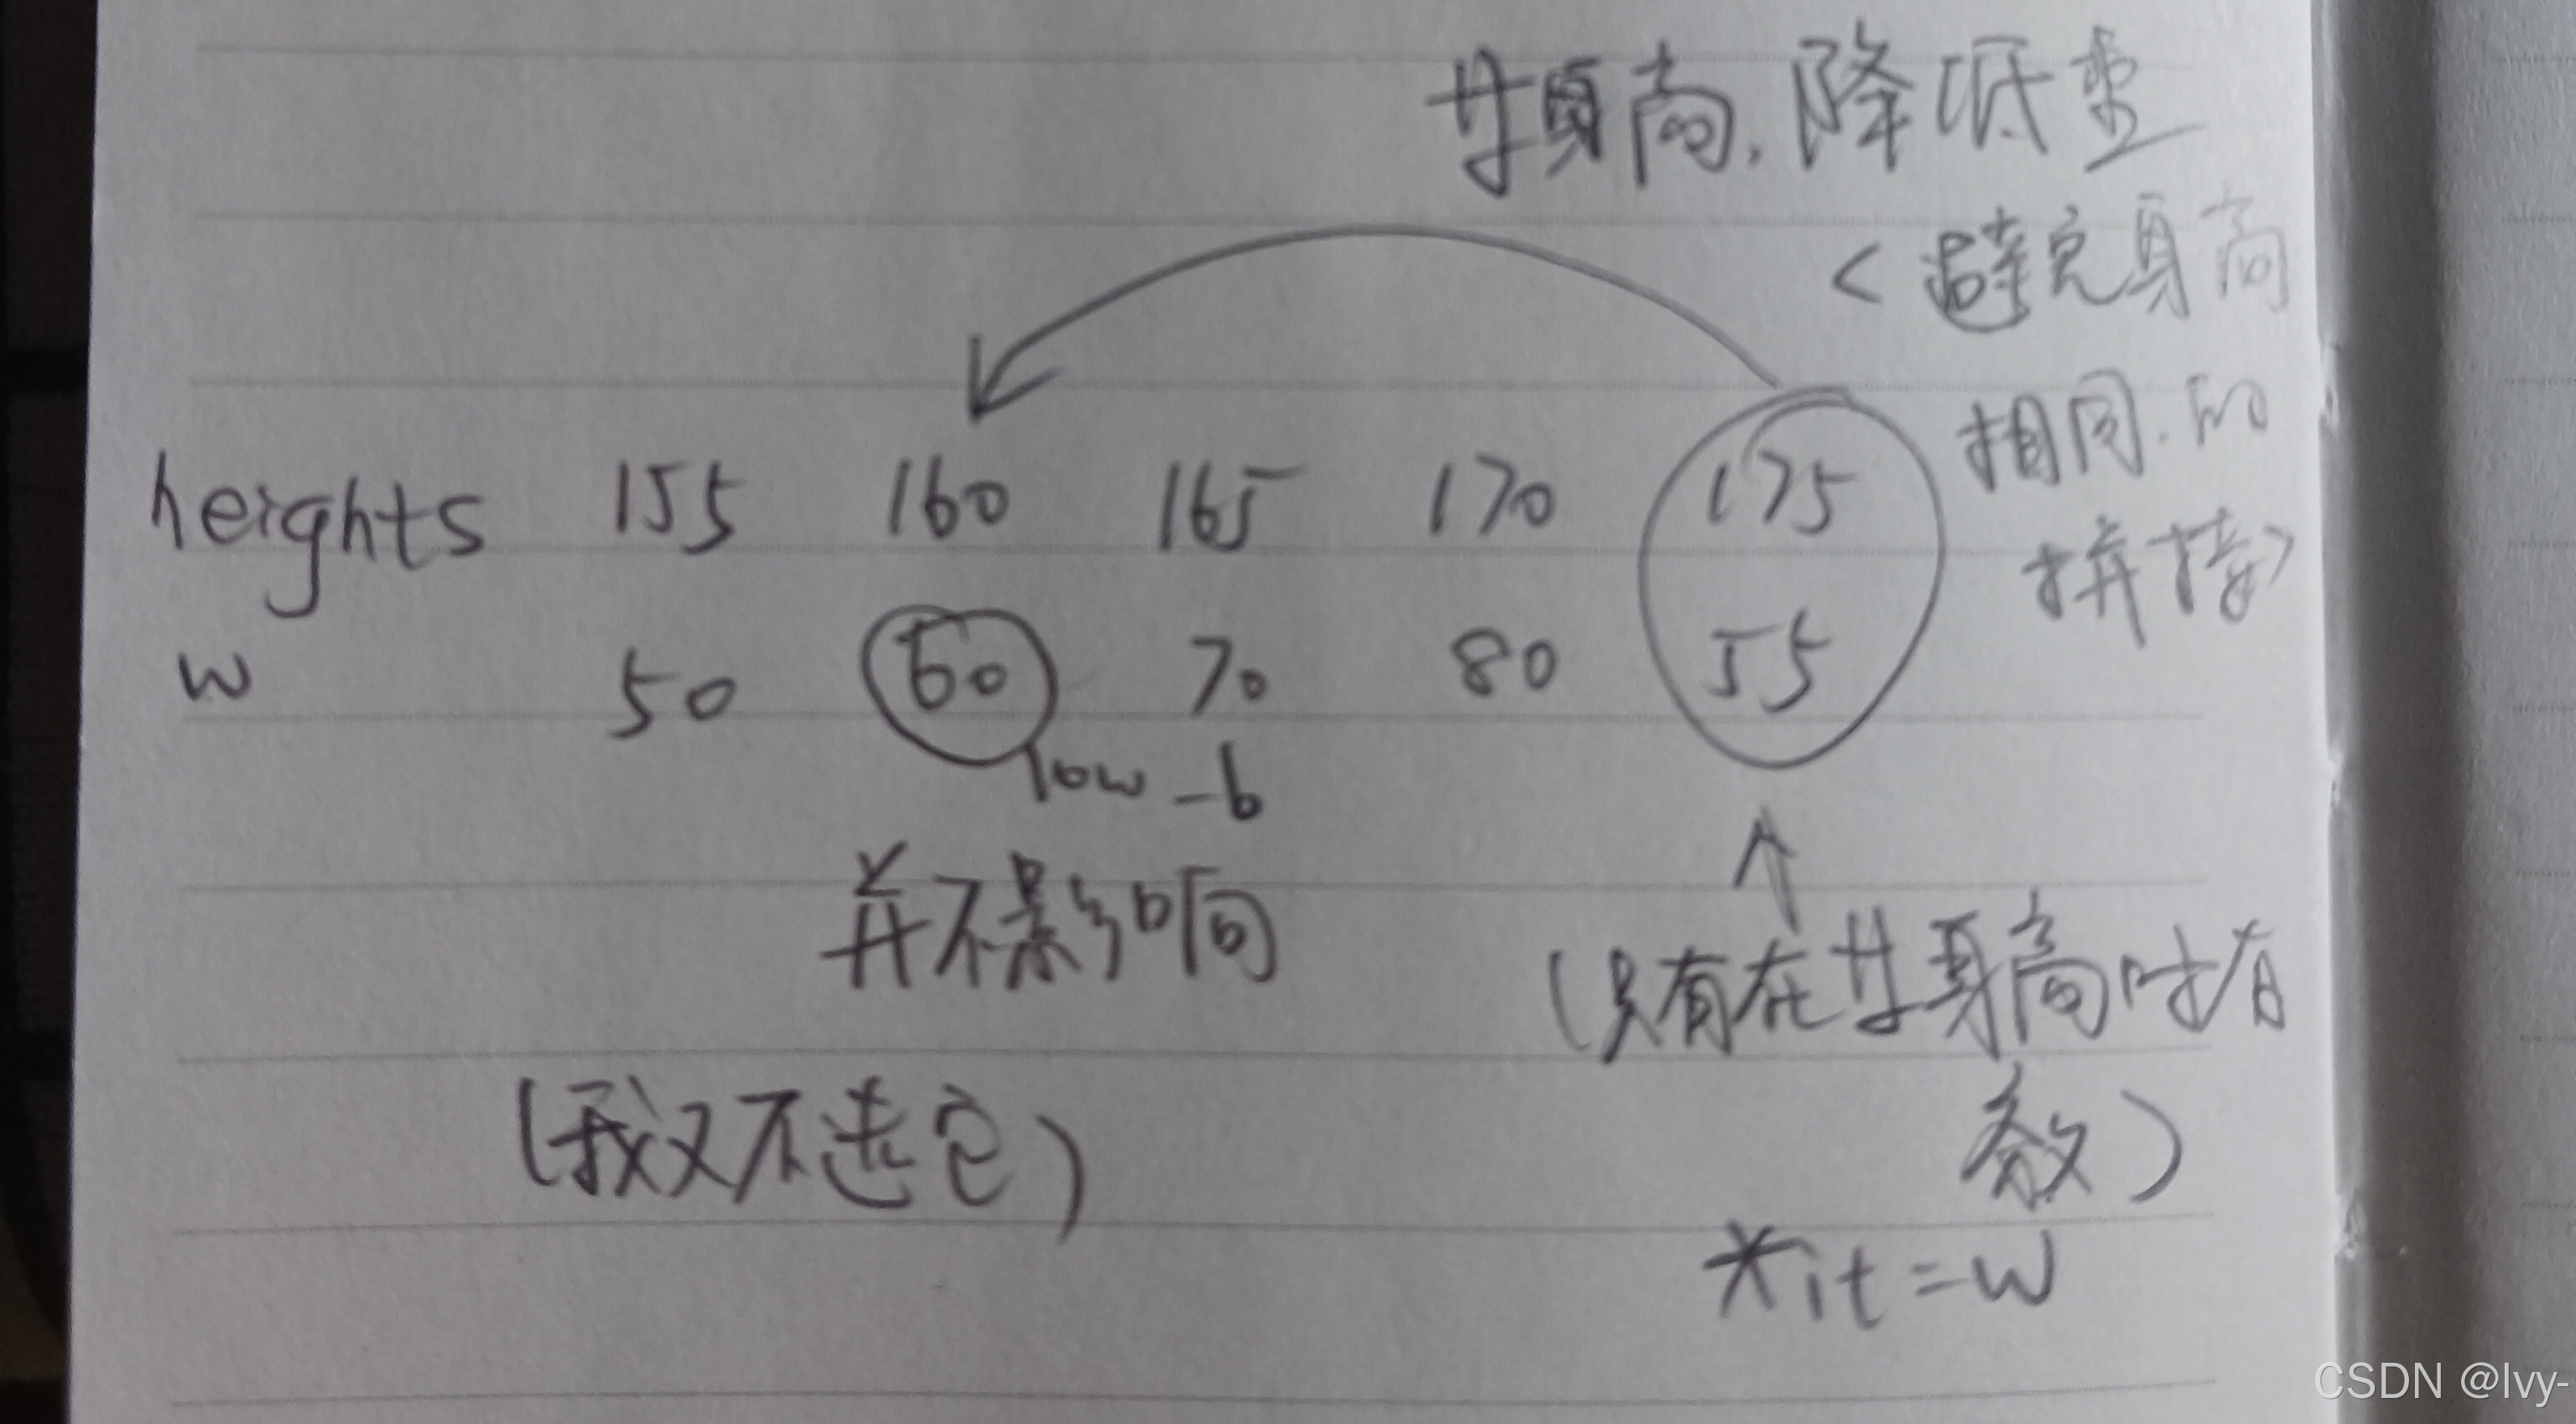 升身高,降低重
<避免身高
相同.的
拼接>
heights 155 160 165 170 175
w 50 60 70 80 55
low_b
并不影响
(我又不选它)
(只有在升身高时有
效)
*it=w
CSDN @lvy-